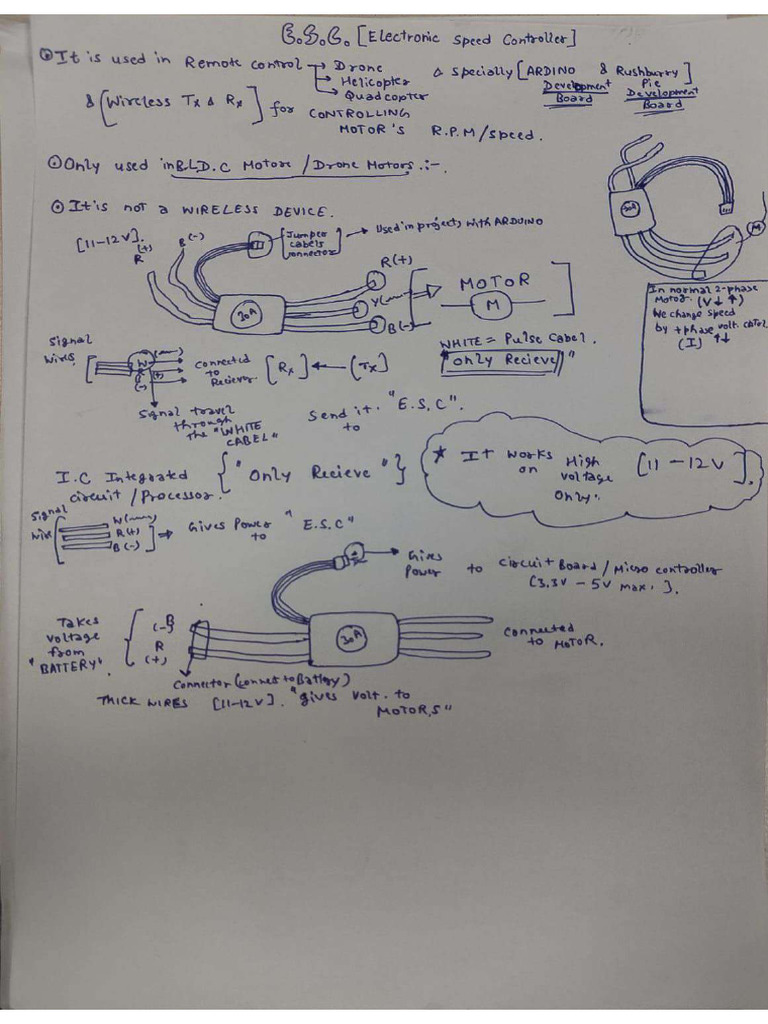 E.S.C. [Electronic Speed Controller]
It is used in Remote control → Drone
→ Helicopter
→ Quadcopter
& specially [ARDINO Development Board & Rushburry Pie Development Board]
& [Wireless Tx & Rx] for CONTROLLING
MOTOR'S R.P.M/speed.
Only used in B.L.D.C Motors / Drone Motors :-
It is not a WIRELESS DEVICE.
[11-12V].
(+)
R
B(-)
[Jumper
cabels
connector]
→ Used in projects with ARDUINO
30A
R(+)
Y
B(-)
MOTOR
M
30A
M
In normal 2-phase
Motor. (V↓↑)
We change speed
by +phase volt.
(I) ↑↓
WHITE = Pulse Cabel.
"Only Recieve"
Signal
wires
W
R (+)
B
(-)
connected
to
Reciever
[Rx] ← (Tx)
Signal travel
through
the "WHITE
CABEL"
Send it
to
"E.S.C".
I.C Integrated
circuit/Processor.
{"Only Recieve"}
★ It works
on High
voltage
Only.
[11-12V].
Signal
Wire
W
R(+)
B(-)
⇒ Gives Power
to
"E.S.C"
→ Gives
Power to circuit Board/Micro controller
[3.3V - 5V max.].
Takes
voltage
from
"BATTERY".
B
(-)
R
(+)
30A
Connected
to MOTOR.
Connector (connect to Battery)
THICK WIRES [11-12V]. "gives volt. to
MOTOR,S"